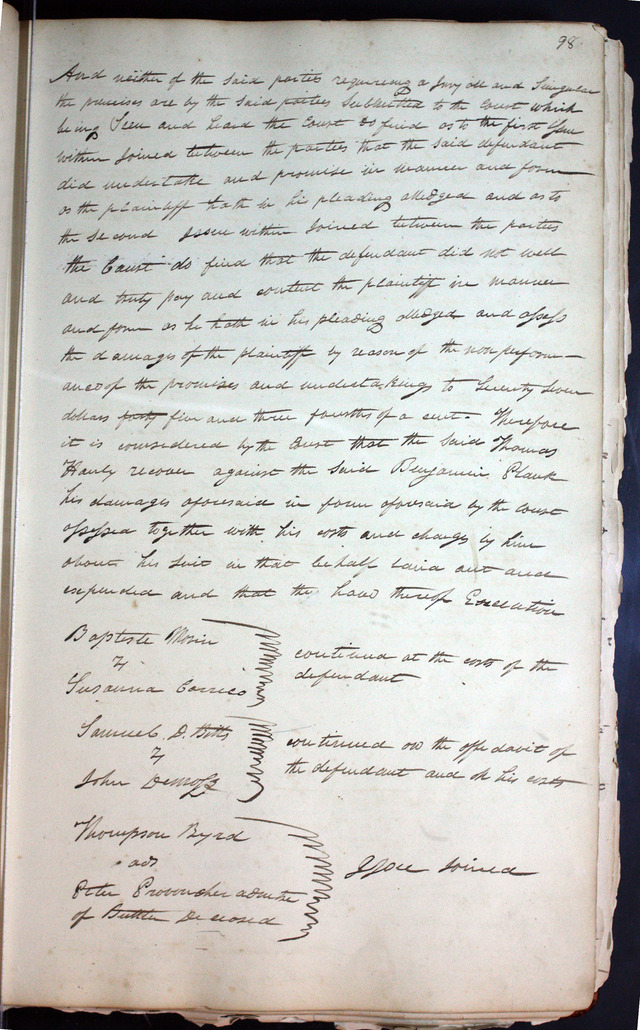 98
And neither of the said parties requiring a Jury all and Singular
the premises are by the said parties Submitted to the Court which
being Seen and heard the Court do find as to the first Issue
within Joined between the parties that the said defendant
did undertake and promise in manner and form
as the plaintiff hath in his pleading alledged and as to
the Second Issue within Joined between the parties
the Court do find that the defendant did not well
and truly pay and content the plaintiff in manner
and form as he hath in his pleading alledged and assess
the damages of the plaintiff by reason of the nonperform-
ance of the promises and undertakings to Seventy Seven
dollars forty five and three fourths of a cent. Therefore
it is considered by the Court that the Said Thomas
Hanly recover against the Said Benjamin Plank
his damages aforesaid in form aforesaid by the Court
assessed together with his costs and charges by him
about his Suit in that behalf laid out and
expended and that he have thereof Execution
Baptiste Morin
v
Susanna Corrico
continued at the costs of the
defendant
Samuel D. Bitts
v
John Demoss
continued on the affidavit of
the defendant and at his costs
Thompson Byrd
ads
Peter Provoncher admstr
of Butter Deceased
Issue Joined